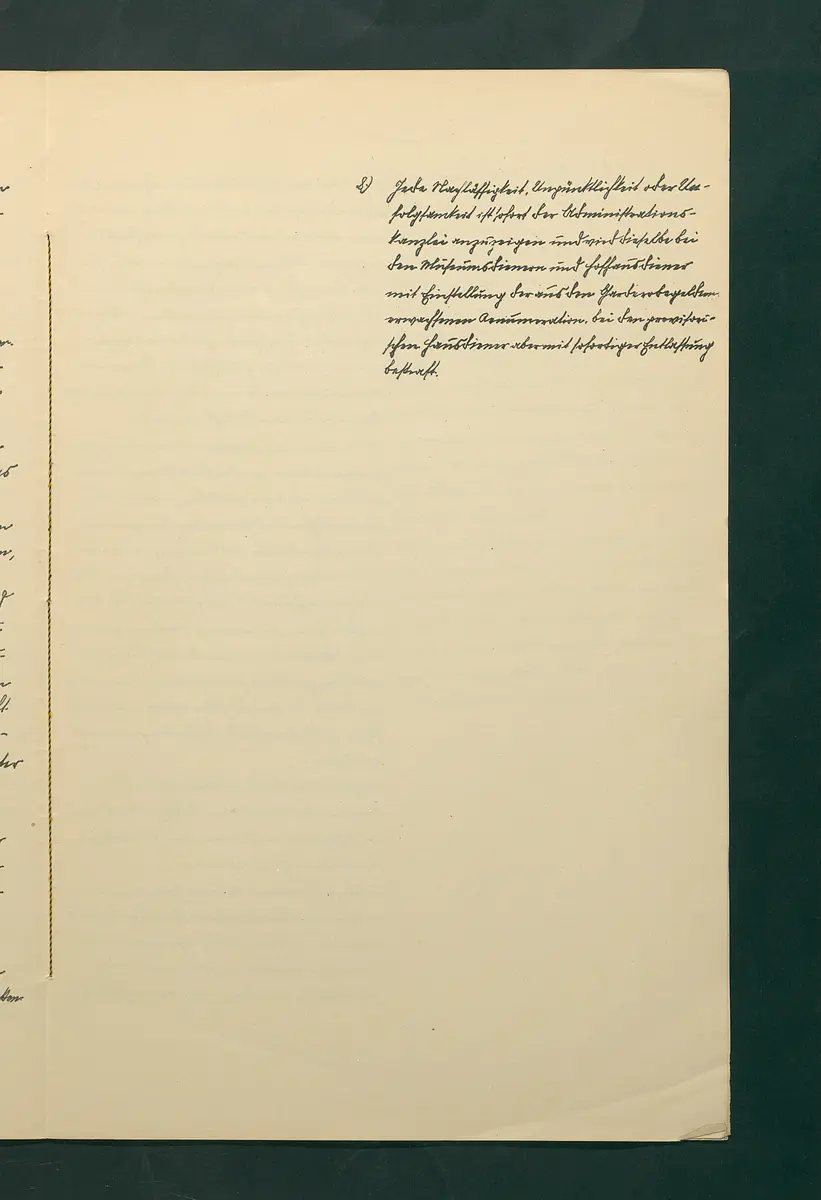 8) Jede Nachlässigkeit, Unpünktlichkeit oder Un-
folgsamkeit ist sofort der Administrations-
kanzlei anzuzeigen und wird dieselbe bei
den Museumsdienern und Hofhausdiener
mit Einstellung der aus den Garderobegeldern
erwachsenen Renumeration, bei den provisori-
schen Hausdiener aber mit sofortiger Entlassung
bestraft.